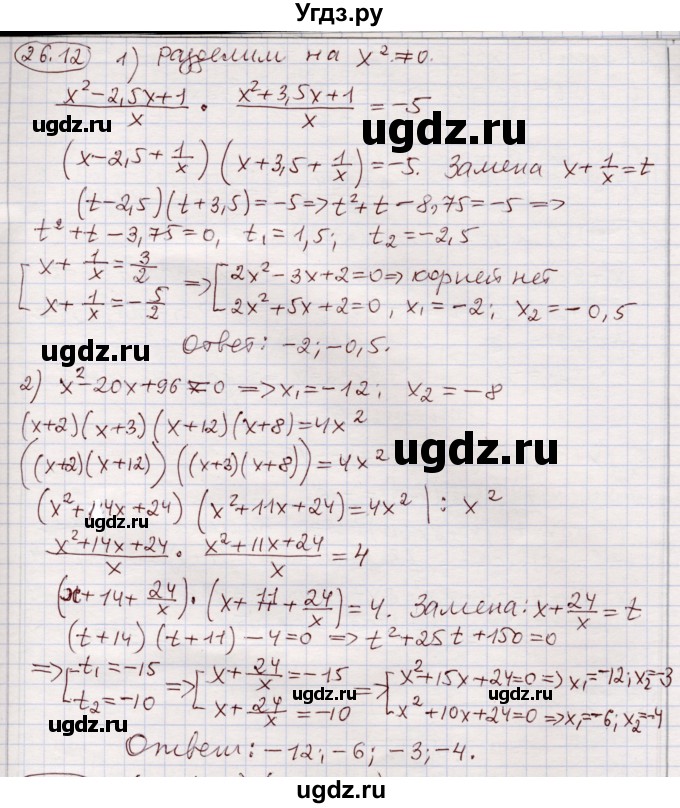 Угдз.ру
26.12 1) разделим на x² ≠ 0.
(x²-2,5x+1)/x · (x²+3,5x+1)/x = -5
ugdz.ru ugdz.ru
(x-2,5+1/x)(x+3,5+1/x)=-5. Замена x+1/x=t
(t-2,5)(t+3,5)=-5=>t²+t-8,75=-5=>
t²+t-3,75=0, t₁=1,5; t₂=-2,5
[x+1/x=3/2 => [2x²-3x+2=0=>корней нет
[x+1/x=-5/2 [2x²+5x+2=0, x₁=-2; x₂=-0,5
ugdz.ru ugdz.ru
Ответ: -2;-0,5.
2) x²-20x+96≠0 => x₁=-12; x₂=-8
(x+2)(x+3)(x+12)(x+8)=4x²
((x+2)(x+12))((x+3)(x+8))=4x²
ugdz.ru
(x²+14x+24)(x²+11x+24)=4x² | : x²
ugdz.ru
(x²+14x+24)/x · (x²+11x+24)/x = 4
(x+14+24/x)·(x+11+24/x)=4. Замена: x+24/x=t
(t+14)(t+11)-4=0 => t²+25t+150=0
=>[t₁=-15 =>[x+24/x=-15 =>[x²+15x+24=0=>x₁=-12; x₂=-3
[t₂=-10 [x+24/x=-10 [x²+10x+24=0=>x₁=-6; x₂=-4
ugdz.ru ugdz.ru ugdz.ru
Ответ: -12; -6; -3; -4.
ugdz.ru